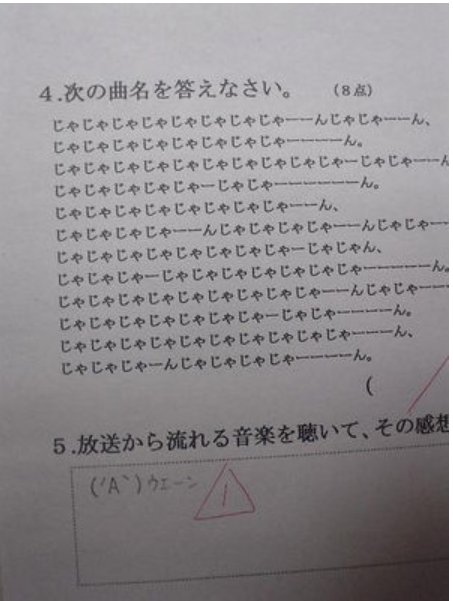 4.次の曲名を答えなさい。 (8点)
じゃじゃじゃじゃじゃじゃじゃじゃーーんじゃじゃーーん、
じゃじゃじゃじゃじゃじゃじゃーーーーん。
じゃじゃじゃじゃじゃじゃじゃじゃじゃじゃーじゃじゃーーん
じゃじゃじゃじゃじゃーじゃじゃーーーーーーん。
じゃじゃじゃじゃじゃじゃじゃじゃーーん、
じゃじゃじゃじゃーーんじゃじゃじゃじゃーーんじゃじゃーー
じゃじゃじゃじゃじゃじゃじゃじゃーじゃじゃん、
じゃじゃじゃーじゃじゃじゃじゃじゃじゃじゃーーーーーん。
じゃじゃじゃじゃじゃじゃじゃじゃじゃーーんじゃじゃーーー
じゃじゃじゃじゃじゃじゃじゃーじゃじゃーーーーん。
じゃじゃじゃじゃじゃじゃじゃじゃじゃじゃーーーん、
じゃじゃじゃーんじゃじゃじゃじゃーーーーん。
(
5.放送から流れる音楽を聴いて、その感想
('A`)ウエーン
1